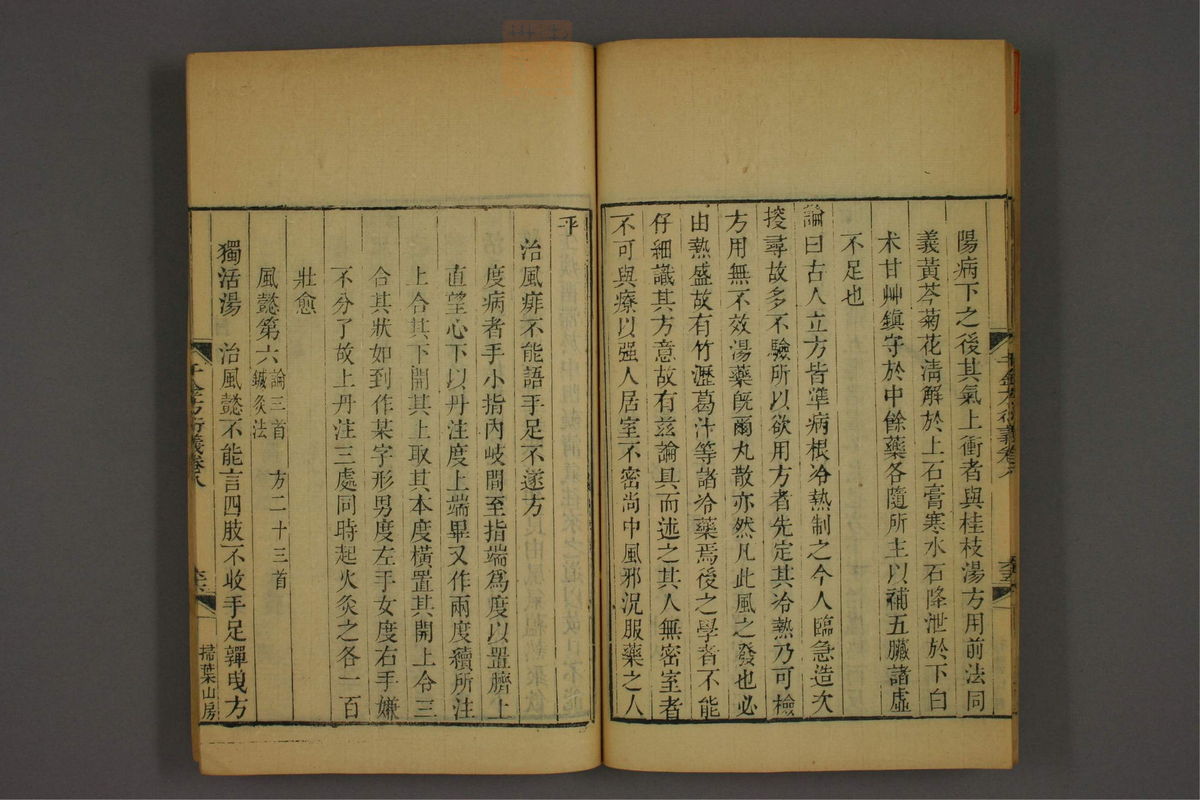 陽病下之後其氣上衝者與桂枝湯方用前法同
義黃芩菊花淸解於上石膏寒水石降泄於下白
术甘艸鎭守於中餘藥各隨所主以補五臟諸虛
不足也
論曰古人立方皆準病根冷熱制之今人臨急造次
揬尋故多不驗所以欲用方者先定其冷熱乃可檢
方用無不效湯藥旣爾丸散亦然凡此風之發也必
由熱盛故有竹瀝葛汁等諸冷藥焉後之學者不能
仔細識其方意故有兹論具而述之其人無密室者
不可與療以强人居室不密尚中風邪況服藥之人
乎
治風痱不能語手足不遂方
度病者手小指內岐間至指端爲度以置臍上
直望心下以丹注度上端畢又作兩度續所注
上合其下開其上取其本度橫置其開上令三
合其狀如到作某字形男度左手女度右手嫌
不分了故上丹注三處同時起火灸之各一百
壯愈
風懿第六 論三首 方二十三首
鍼灸法
獨活湯 治風懿不能言四肢不收手足嚲曳方
千金方衍義卷八
掃葉山房